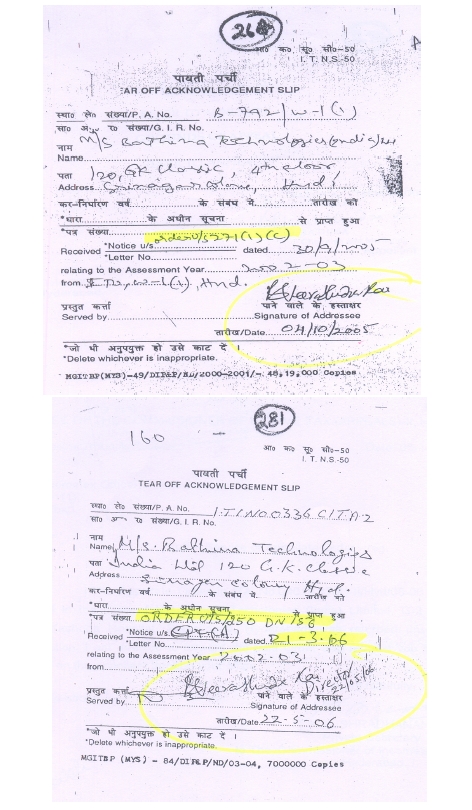 268
आ० क० सू० सी०-50
I. T. N.S.-50
पावती पर्ची
EAR OFF ACKNOWLEDGEMENT SLIP
स्था० ले० संख्या/P. A. No. B-792/W-1(1)
सा० अ० र० संख्या/G. I. R. No.
M/S Bathina Technologies (India) Ltd
नाम
Name
पता 120, GK Classic, 4th Floor
Address Srinagar Colony, Hyd
कर-निर्धारण वर्ष के संबंध में तारीख की
*धारा के अधीन सूचना से प्राप्त हुआ
*पत्र संख्या
Received *Notice u/s order U/S 271(1)(c) dated 30/9/2005
*Letter No.
relating to the Assessment Year 2002-03
from ITO, W-1(1), Hyd.
प्रस्तुत कर्त्ता पाने वाले के हस्ताक्षर
Served by Signature of Addressee
तारीख/Date 04/10/2005
*जो भी अनुपयुक्त हो उसे काट दें ।
*Delete whichever is inappropriate.
MGITBP(MYS)-49/DIP&P/ND/2000-2001/-48,19,000 Copies
281
160 -
आ० क० सू० सी०-50
I. T. N.S.-50
पावती पर्ची
TEAR OFF ACKNOWLEDGEMENT SLIP
स्था० ले० संख्या/P. A. No. I.T.I NO 0336 CIT A-2
सा० अ० र० संख्या/G. I. R. No.
नाम
Name M/s. Bathina Technologies
पता India Ltd 120 G.K. Classic
Address Srinagar Colony Hyd.
कर-निर्धारण वर्ष के संबंध में तारीख की
*धारा के अधीन सूचना से प्राप्त हुआ
*पत्र संख्या ORDER U/S 250 DN/56
Received *Notice u/s dated 21-3-06
*Letter No
relating to the Assessment Year 2002-03
from
Director
22/05/06
प्रस्तुत कर्त्ता पाने वाले के हस्ताक्षर
Served by Signature of Addressee
तारीख/Date 22-5-06
*जो भी अनुपयुक्त हो उसे काट दें ।
*Delete whichever is inappropriate.
MGITBP (MYS) - 84/DIP&P/ND/03-04, 7000000 Copies